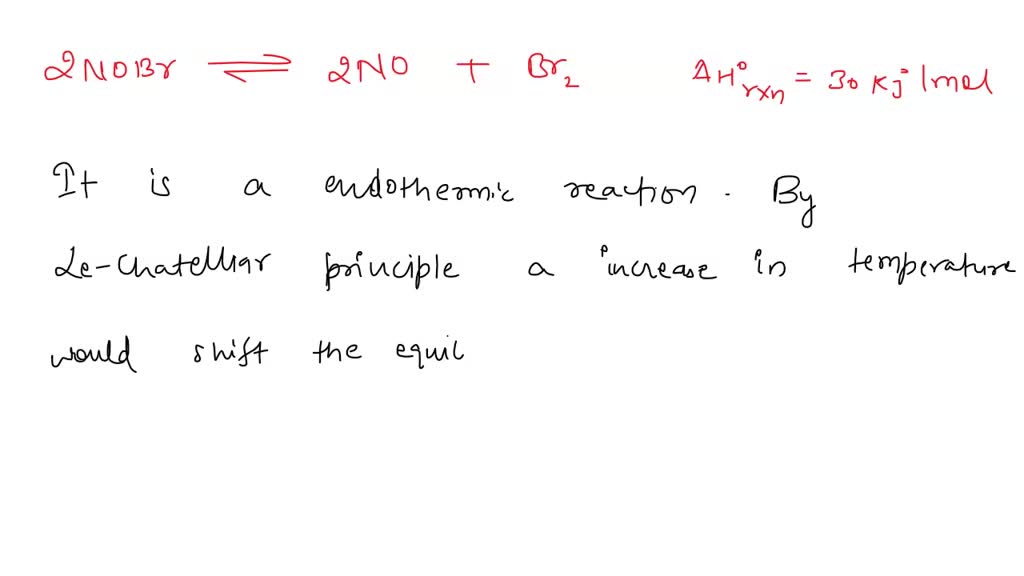 2NOBr ⇌ 2NO + Br₂ ΔH°rxn = 30 kJ/mol
It is a endothermic reaction. By
Le-Chatelliar principle a increase in temperature
would shift the equil